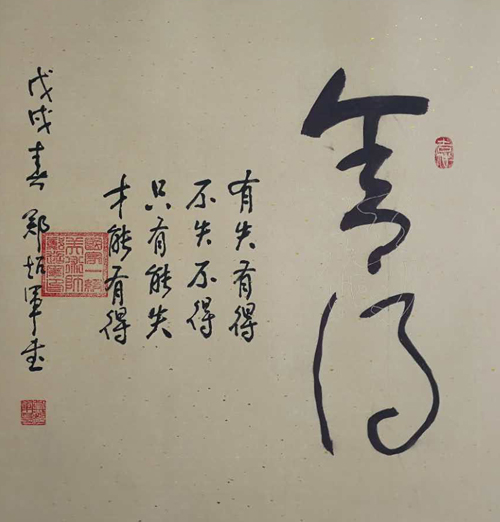 舍得
有失有得
不失不得
只有能失
才能有得
戊戌春 郑军书